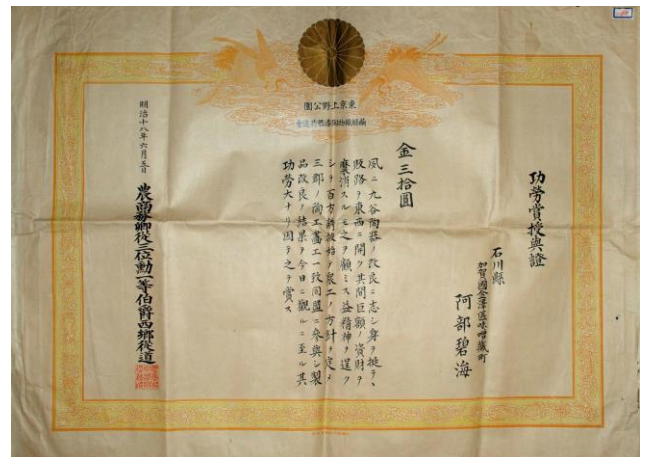 東京上野公園
繭絲織物陶漆器共進會
功勞賞授與證
石川縣
加賀國金澤區味噌藏町
阿部碧海
金三拾圓
夙ニ九谷陶器ノ改良ニ志シ身ヲ挺テヽ
販路ヲ東西ニ開ク其間巨額ノ資財ヲ
糜消スルモ之ヲ顧ミス益精神ヲ逞ク
シテ百方 方針ヲ定メ
三郡ノ陶工畫工一致同盟ニ參與シ製
品改良ノ結果ヲ今日ニ觀ルニ至ル其
功勞大ナリ因テ之ヲ賞ス
明治十八年六月五日
農商務卿從三位勳一等伯爵西鄕從道